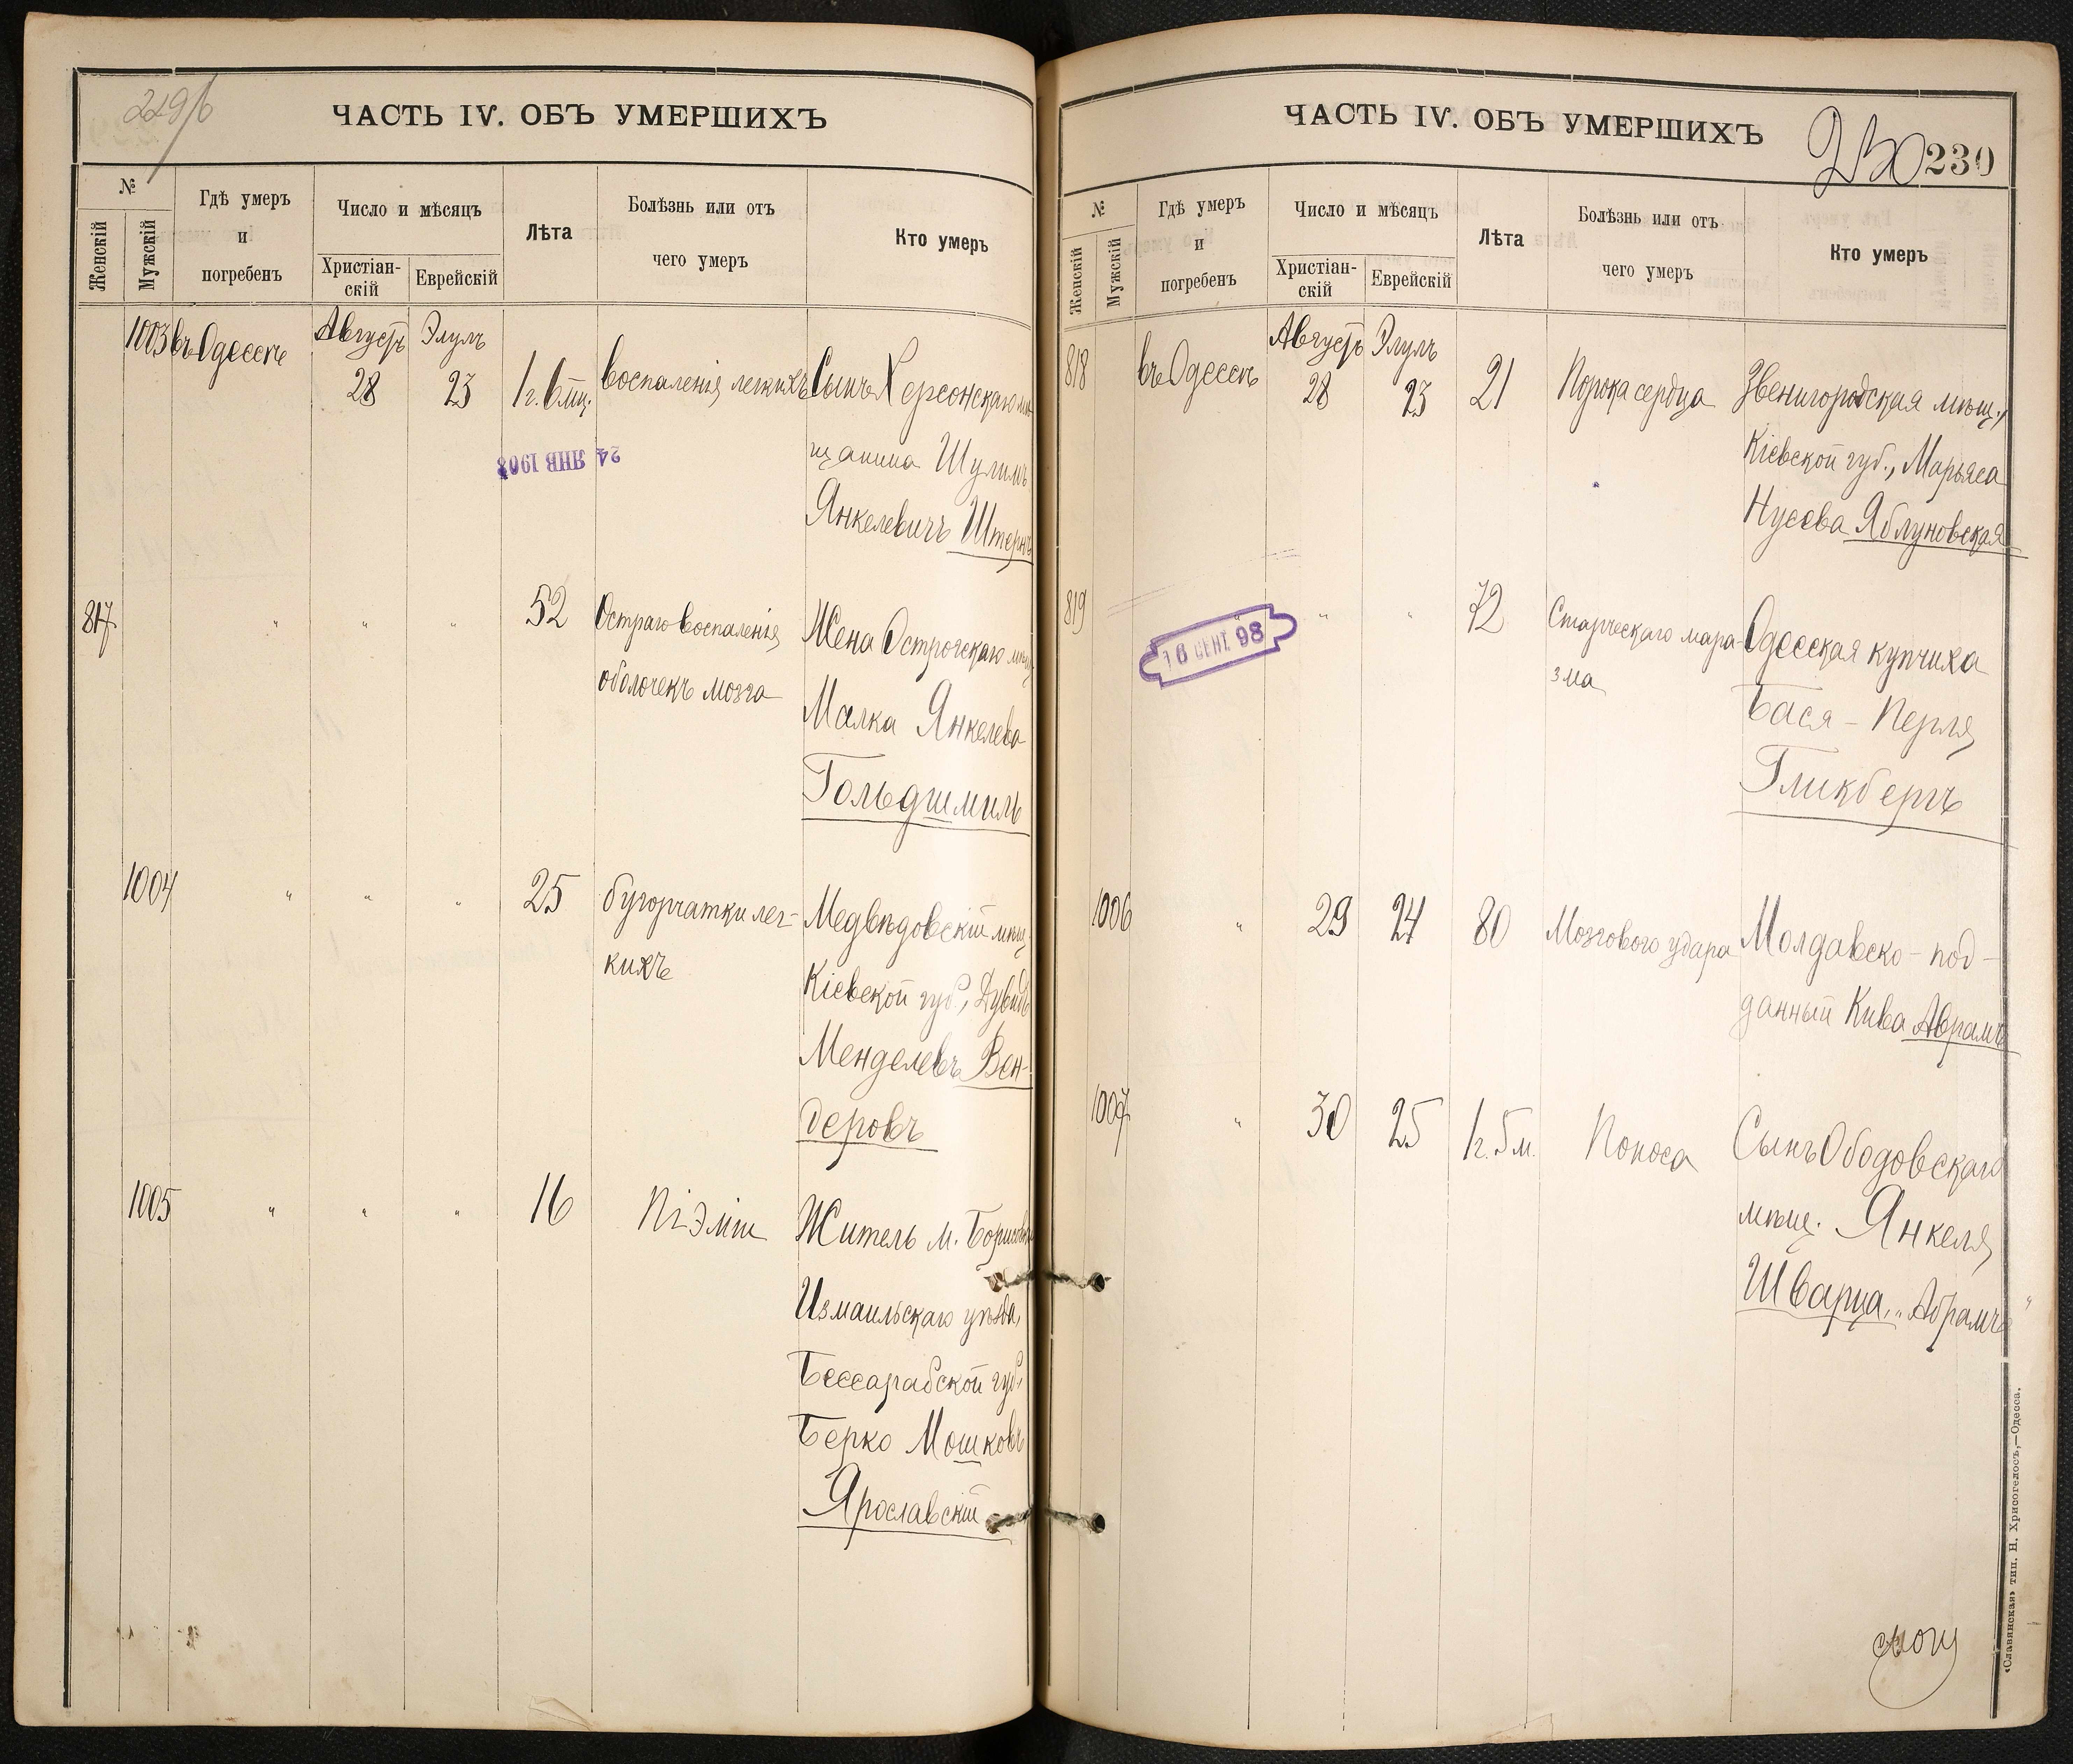 229/б
ЧАСТЬ IV. ОБЪ УМЕРШИХЪ
№
Женскій
Мужскій
Гдѣ умеръ
и
погребенъ
Число и мѣсяцъ
Христіан-
скій
Еврейскій
Лѣта
Болѣзнь или отъ
чего умеръ
Кто умеръ
1003 въ Одессѣ Августъ Элулъ
28 23 1 г. 6 мц. воспаленія легкихъ Сынъ Херсонскаго мѣ-
щанина Шулимъ
Янкелевичъ Штернъ
24 ЯНВ 1908
817 " " " 52 Остраго воспаленія Жена Острогскаго мѣщ
оболочекъ мозга
Малка Янкелева
Гольдшмилъ
1004 " " " 25 бугорчатки лег- Медвѣдовскій мѣщ.
кихъ
Кіевской губ., Дувидъ
Менделевъ Вен-
деровъ
1005 " " " 16 Піэміи Житель м.
Измаильскаго уѣзда,
Бессарабской губ.
Берко Мошковъ
Ярославскій
ЧАСТЬ IV. ОБЪ УМЕРШИХЪ
230 230
№
Женскій
Мужскій
Гдѣ умеръ
и
погребенъ
Число и мѣсяцъ
Христіан-
скій
Еврейскій
Лѣта
Болѣзнь или отъ
чего умеръ
Кто умеръ
818 въ Одессѣ Августъ Элулъ
28 23 21 Порока сердца Звенигородская мѣщ.,
Кіевской губ., Марьяса
Нусева Яблуновская
819 " " 72 Старческаго мара- Одесская купчиха
зма
Бася - Перля
Гликбергъ
16 СЕНТ. 98
1006 " 29 24 80 Мозгового удара Молдавско - под-
данный Кива Абрамъ
1007 " 30 25 1 г. 5 м. Поноса Сынъ Ободовскаго
мѣщ. Янкеля
Шварца, "Абрамъ"
«Славянская» тип. Н. Хрисогелосъ,—Одесса.